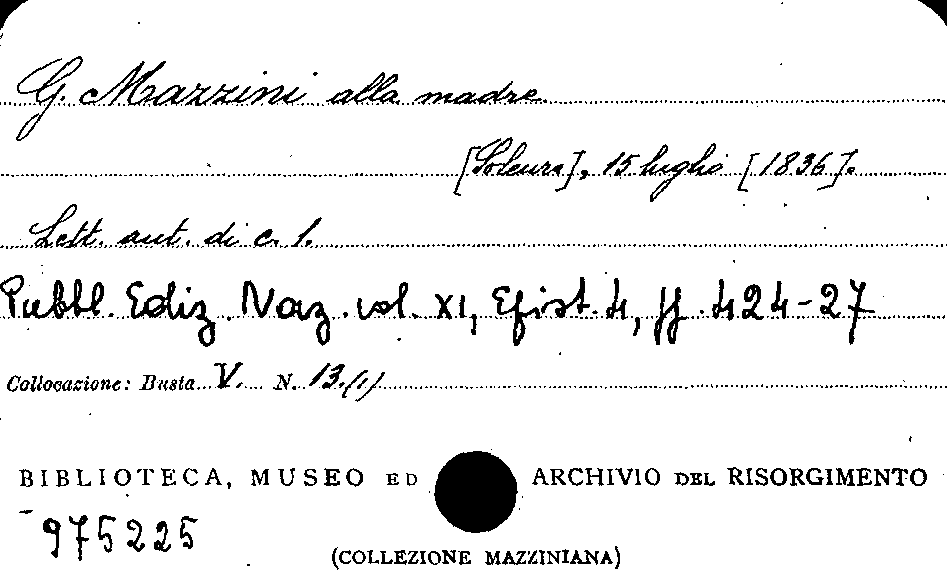 G. Mazzini alla madre
[Soleura], 15 luglio [1836].
Lett. aut. di c. 1.
Pubbl. Ediz. Naz. vol. XI, Epist. 4, pp. 424-27
Collocazione: Busta V. N. 13.(1)
BIBLIOTECA, MUSEO ED ARCHIVIO DEL RISORGIMENTO
975225
(COLLEZIONE MAZZINIANA)